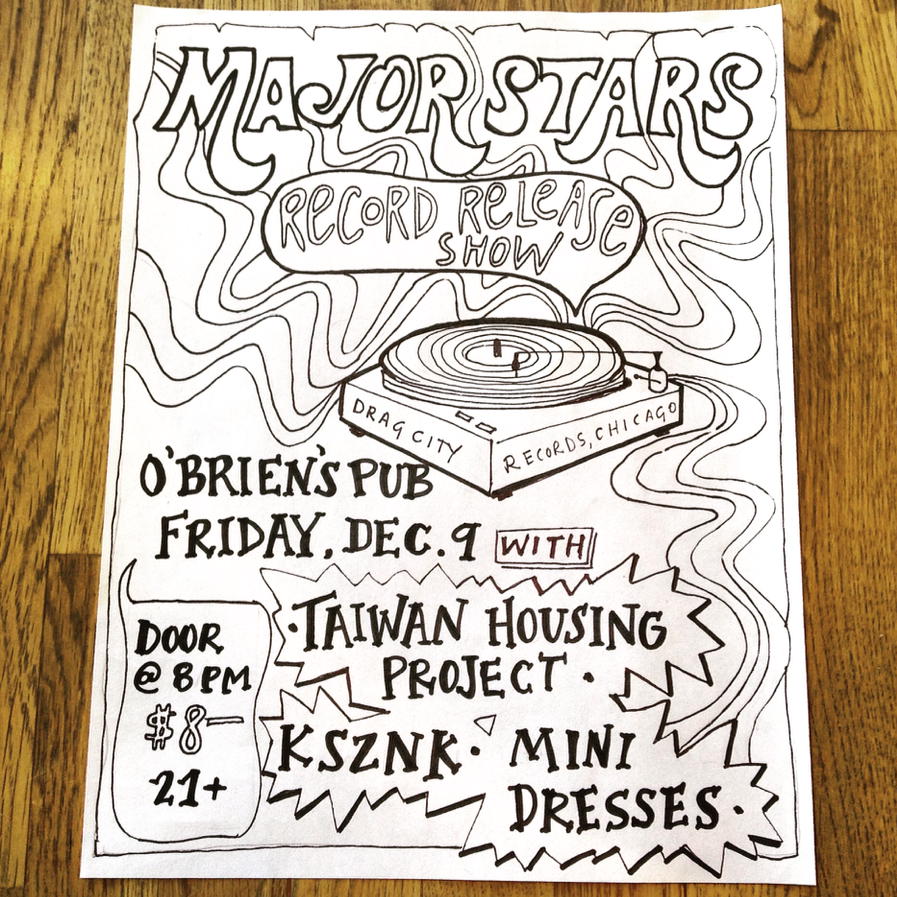 MAJOR STARS
RECORD RELEASE
SHOW
DRAG CITY
RECORDS, CHICAGO
O'BRIEN'S PUB
FRIDAY, DEC. 9 WITH
DOOR
@ 8 PM
$8—
21+
·TAIWAN HOUSING
PROJECT·
KSZNK· MINI
DRESSES·